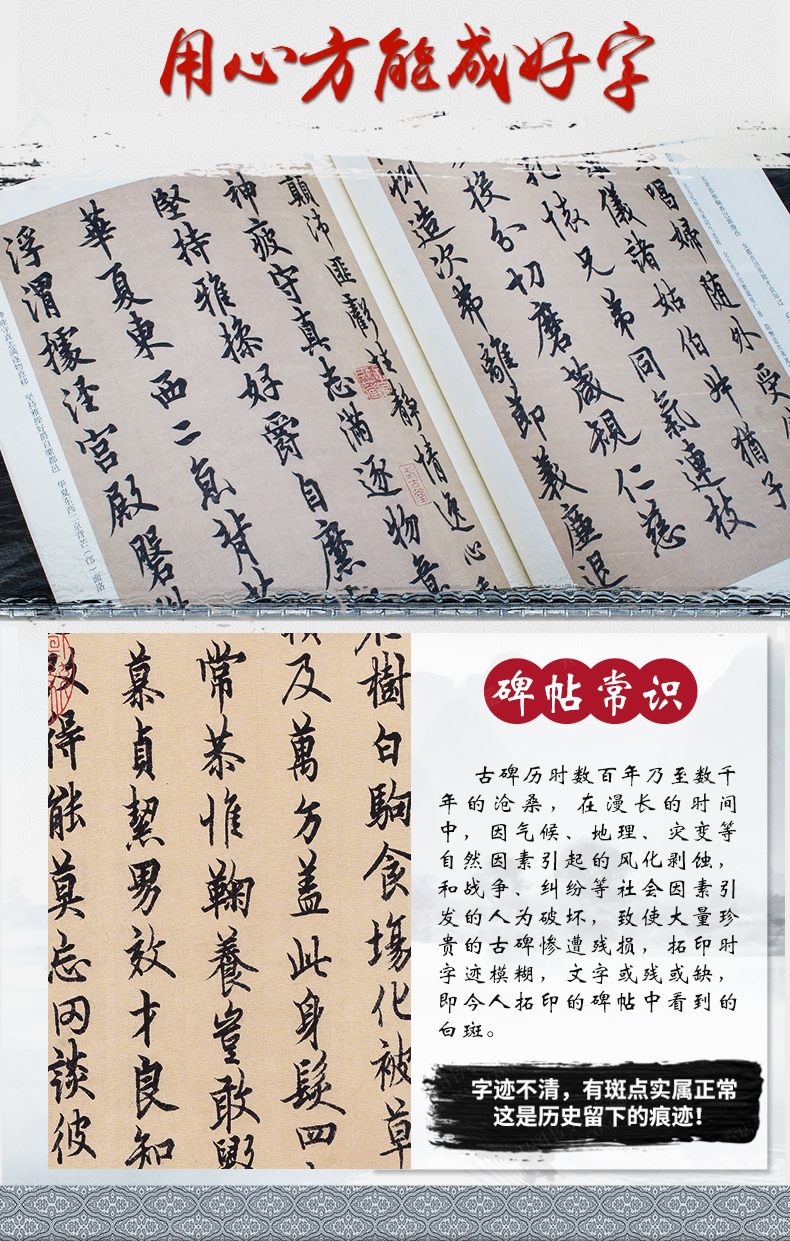 用心方能成好字
唱婦随外受
儀諸姑伯叔猶子
孔懷兄弟同氣連枝
投分切磨箴規仁慈
造次弗離節義廉退
顛沛匪虧性靜情逸心
神疲守真志滿逐物意
堅持雅操好爵自縻
華夏東西二京背芒
浮渭據涇宮殿磐
疲守真志满逐物意移 坚持雅操好爵自縻都邑 华夏东西二京背芒（邙）面洛
樹白駒食場化被草
及萬方蓋此身髮四
常恭惟鞠養豈敢毀
慕貞絜男效才良知
改得能莫忘罔談彼
碑帖常识
古碑历时数百年乃至数千
年的沧桑，在漫长的时间
中，因气候、地理、灾变等
自然因素引起的风化剥蚀，
和战争、纠纷等社会因素引
发的人为破坏，致使大量珍
贵的古碑惨遭残损，拓印时
字迹模糊，文字或残或缺，
即今人拓印的碑帖中看到的
白斑。
字迹不清，有斑点实属正常
这是历史留下的痕迹！